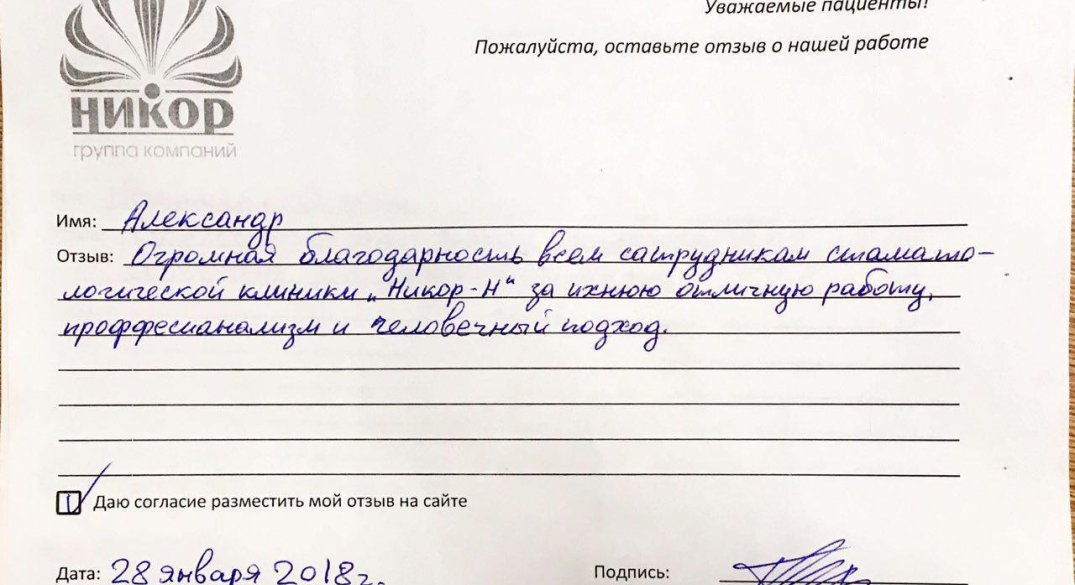 Уважаемые пациенты!
Пожалуйста, оставьте отзыв о нашей работе
НИКОР
группа компаний
Имя: Александр
Отзыв: Огромная благодарность всем сатрудникам стамато-
логической клиники „Никор-Н“ за ихнюю отличную работу,
проффесианализм и человечный подход.
Даю согласие разместить мой отзыв на сайте
Дата: 28 января 2018 г.
Подпись: